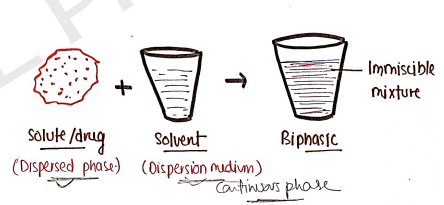 Immiscible
mixture
Solute/drug
Solvent
Biphasic
(Dispersed phase)
(Dispersion medium)
Continuous phase